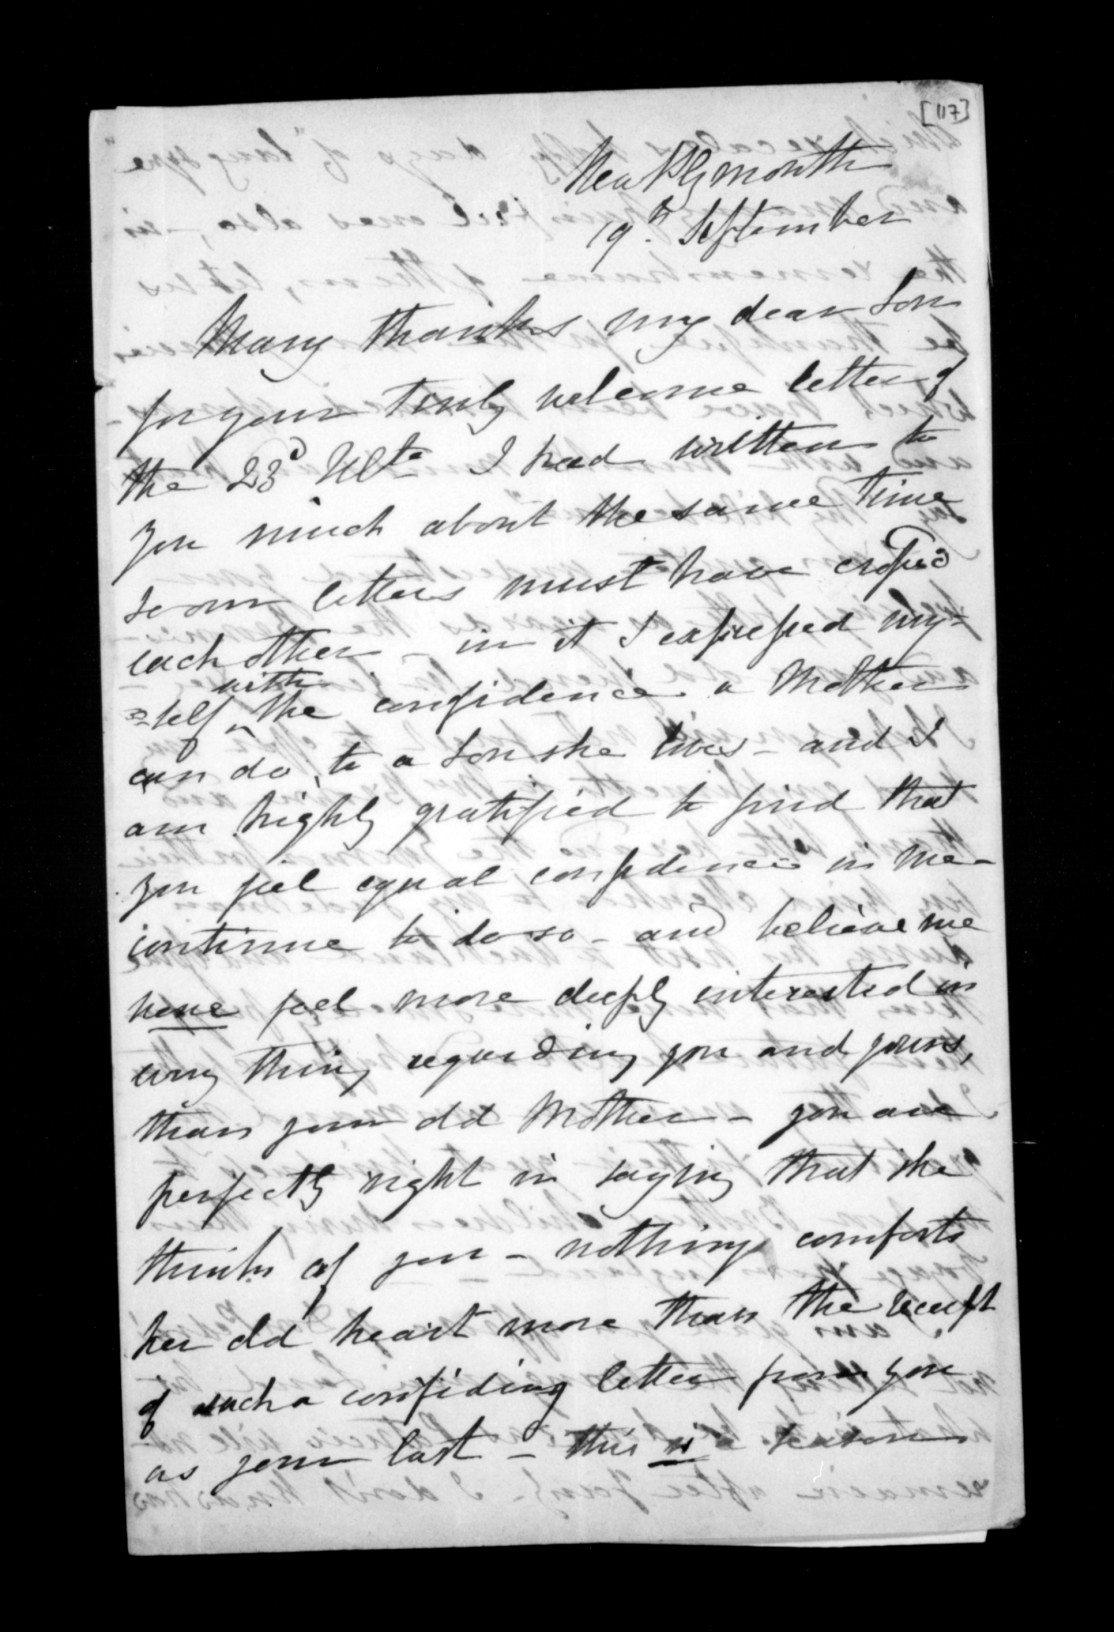 [117]
New Plymouth
19th September
Many thanks my dear Son
for your truly welcome letter of
the 23d Ulto I had written to
you much about the same time
so our letters must have crossed
each other - in it I expressed my=
=self with the confidence a Mother
can do, to a Son she loves - and I
am highly gratified to find that
you feel equal confidence in me -
continue to do so - and believe me
none feel more deeply interested in
every thing regarding you and yours,
than your old Mother - you are
perfectly right in saying that she
thinks of you - nothing comforts
her old heart more than the receipt
of such a confiding letter from you
as your last - this is a season